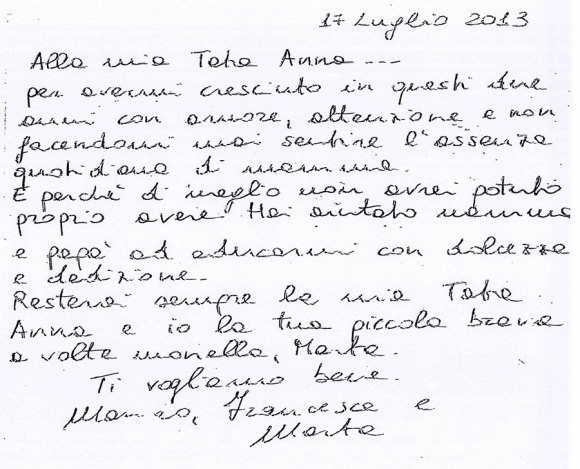 17 Luglio 2013
Alla mia Tata Anna ---
per avermi cresciuto in questi due
anni con amore, attenzione e non
facendomi mai sentire l'assenza
quotidiana di mamma.
E perchè di meglio non avrei potuto
proprio avere! Hai aiutato mamma
e papà ad educarmi con dolcezza
e dedizione.
Resterai sempre la mia Tata
Anna e io la tua piccola brava
a volte monella, Marta.
Ti vogliamo bene.
Francesca e
Marta